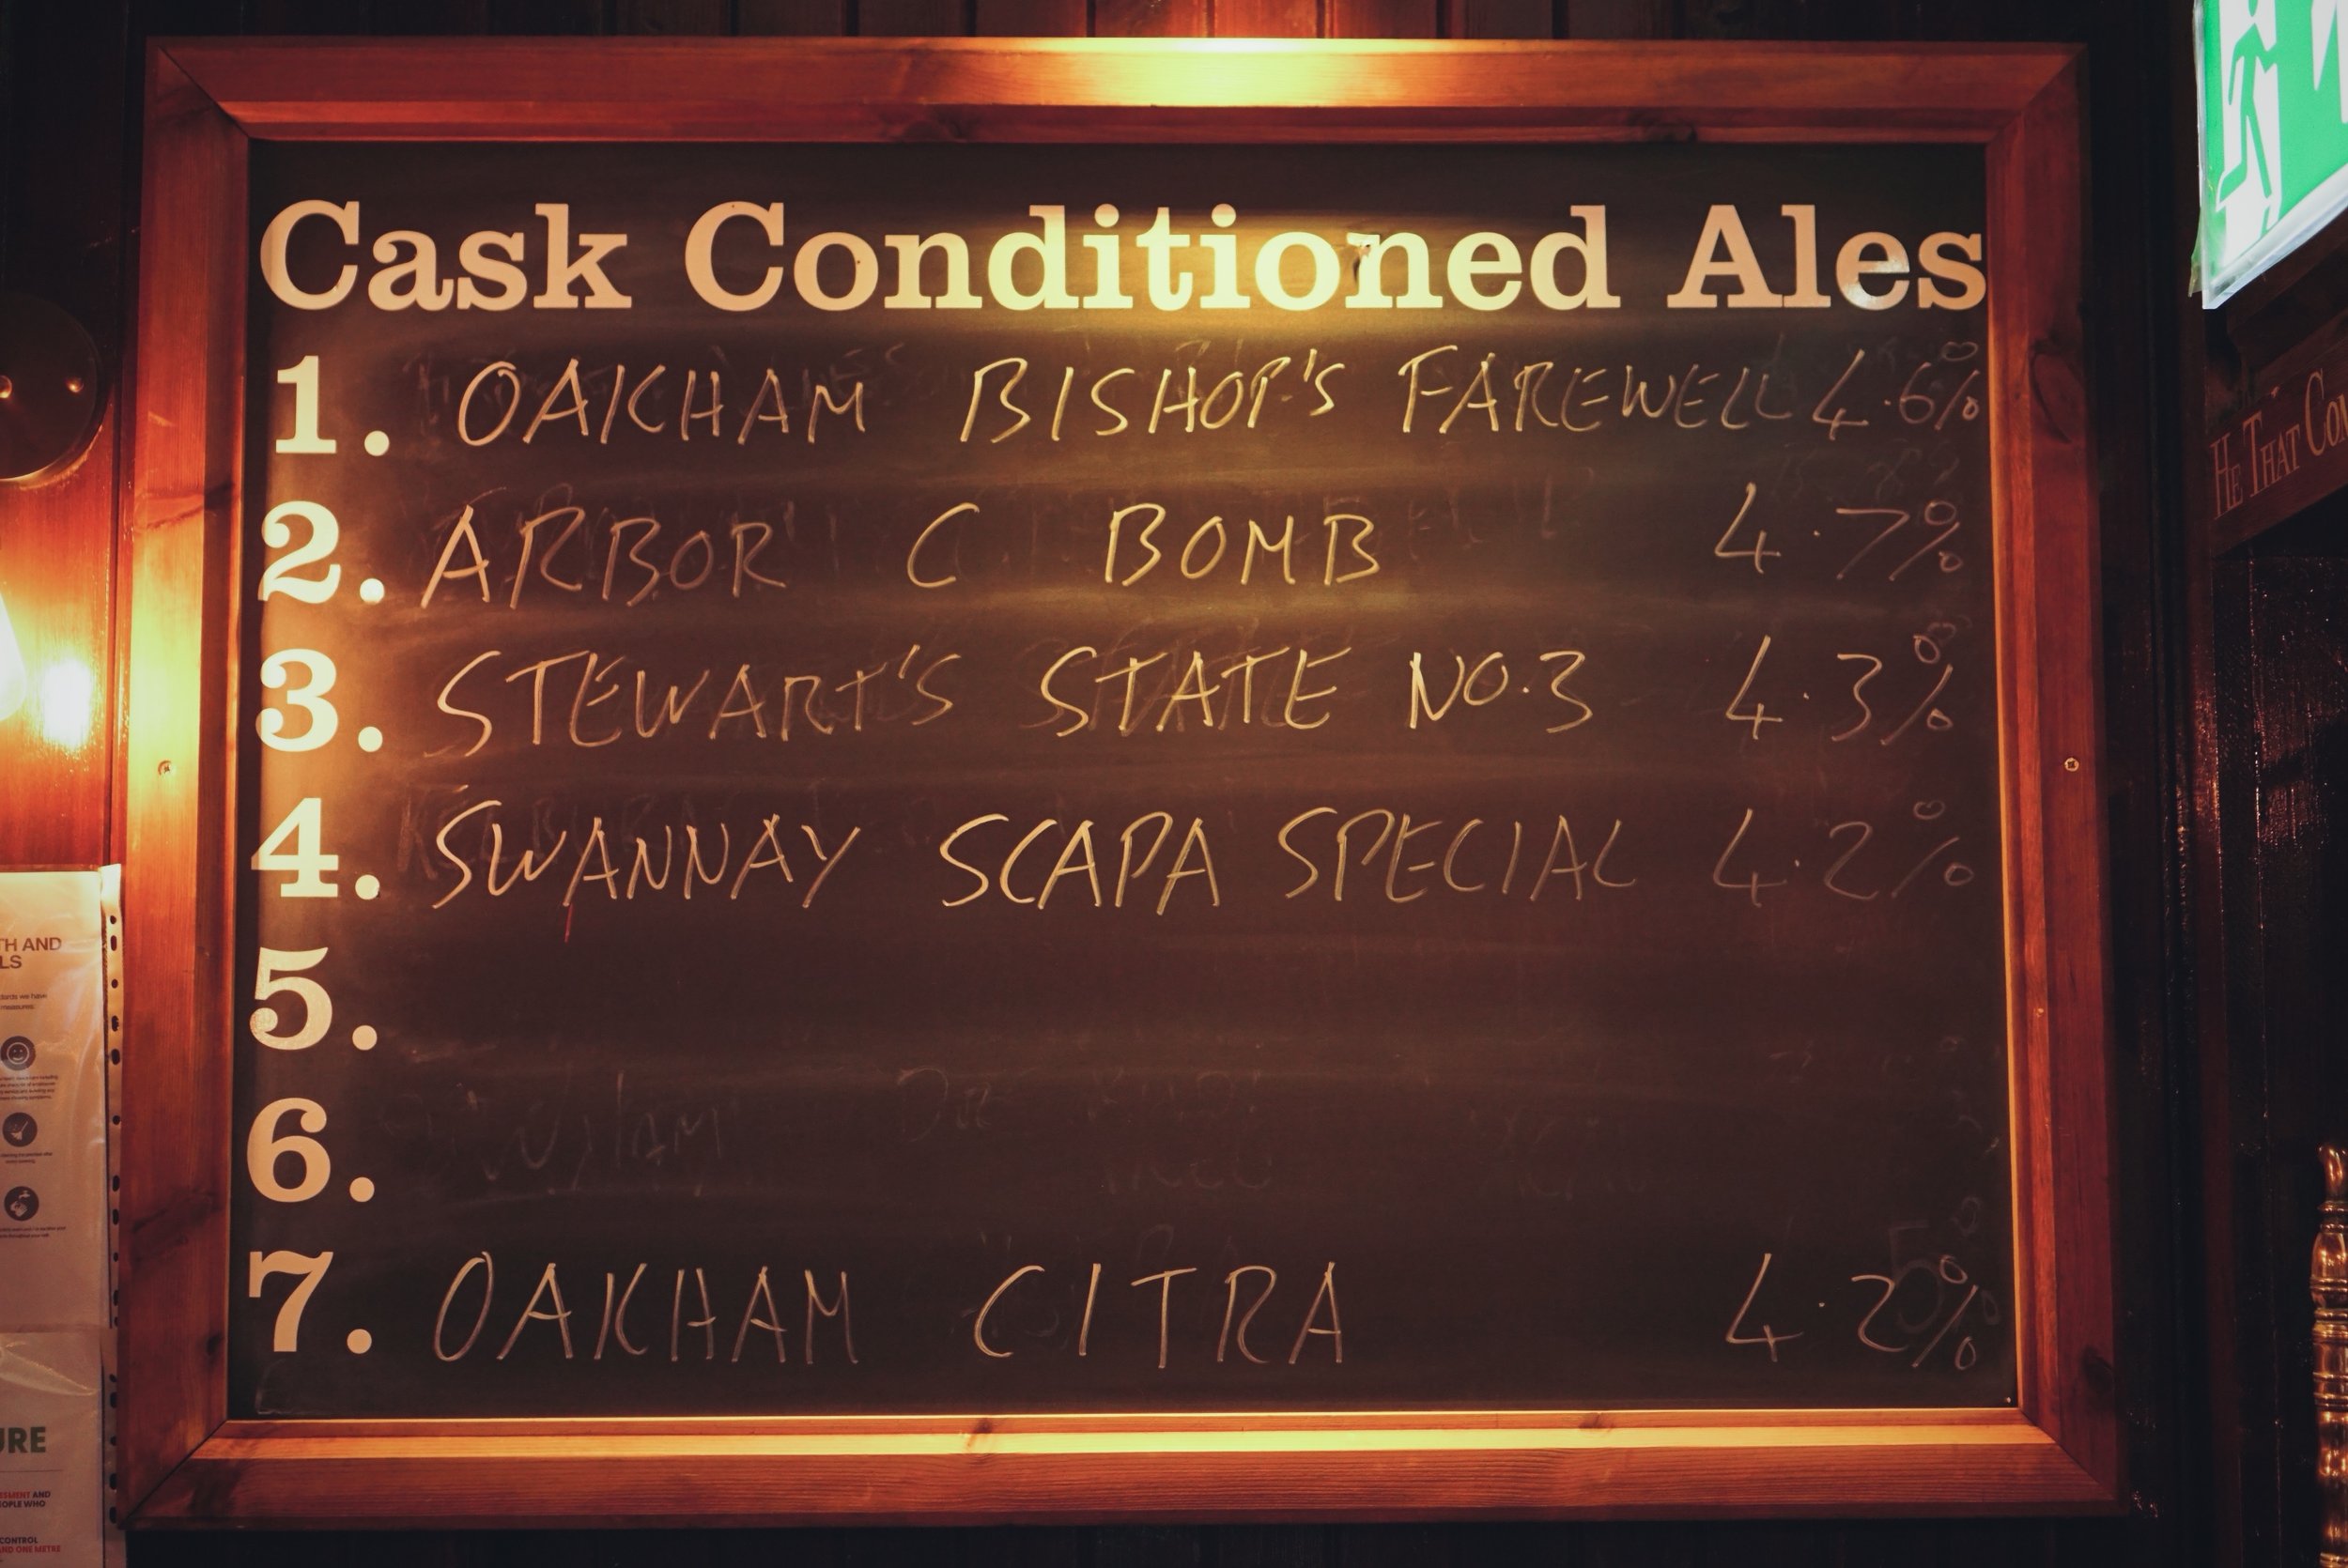 Cask Conditioned Ales
1. OAKHAM BISHOP'S FAREWELL 4.6%
2. ARBOR C BOMB 4.7%
3. STEWART'S STATE NO.3 4.3%
4. SWANNAY SCAPA SPECIAL 4.2%
5.
6.
7. OAKHAM CITRA 4.2%
HE THAT
TH AND
LS
URE
AND
OPLE WHO
CONTROL
AND ONE METRE